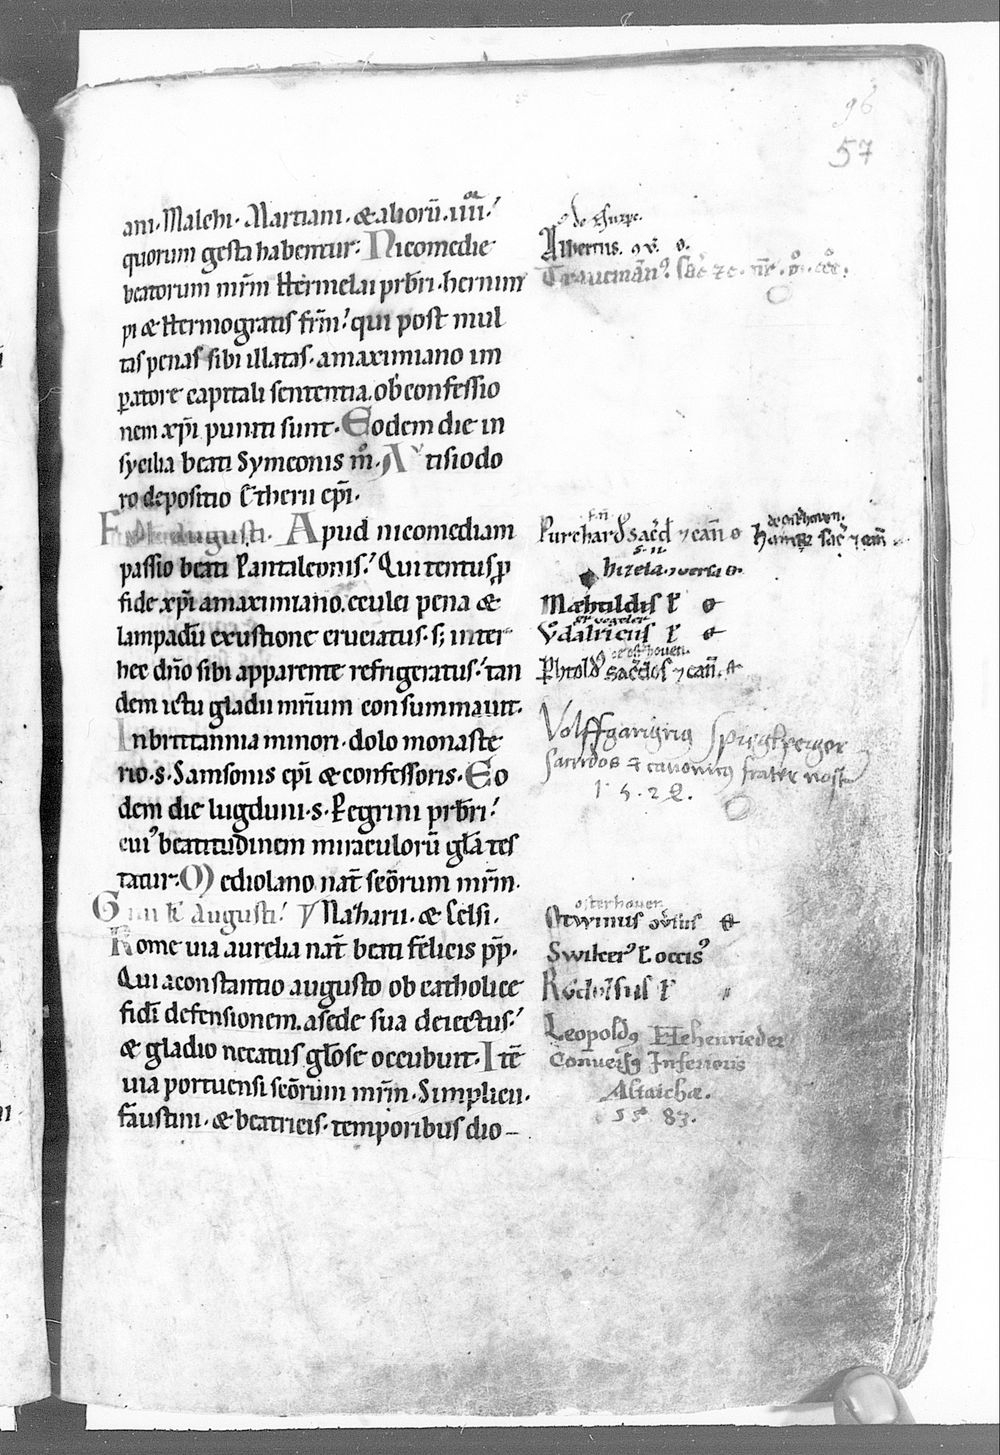 96
57
ani. Malchi. Martiani. & alioꝝ. iiii.
quorum gesta habentur. Nicomedie
beatorum mr̄m Hermelai prb̄ri. hermip
pi & Hermogratis fr̄m. qui post mul
tas penas sibi illatas. a maximiano im
ꝑatore capitali sententia. ob confessio
nem xp̄i puniti sunt. Eodem die in
sycilia beati Symeonis m̊. A tisiodo
ro depositio Etherii ep̄i.
F augusti. Apud nicomediam
passio beati Pantaleonis. Qui tentus ꝓ
fide xp̄i a maximiano. eculei pena &
lampadū exustione cruciatus. s; inter
hec dn̄o sibi apparente refrigeratus. tan
dem ictu gladii mr̄ium consummauit.
In brittannia minori. dolo monaste
rio. s. Samsonis ep̄i & confessoris. Eo
dem die lugduni. s. Peregrini prb̄ri.
cui' beatitudinem miraculorū gl̄a tes
tatur. Mediolano nat̄ sc̄orum mr̄m.
G iiii k' Augusti. Naharii. & Celsi.
Rome uia aurelia nat̄ beati felicis pp̄.
Qui a constantio augusto ob catholice
fidei defensionem. a sede sua deiectus.
& gladio necatus gl̄ose occubuit. Itē
uia portuensi sc̄orum mr̄m. Simplicii.
faustini. & beatricis. temporibus dio-
Albertus. 9v̄. o.
Purchard' sac̄d 7 can̄ o
hizela. 9versa o.
Mæhtildis l'
Vdalricus l'
de osthoven.
Phtold' sac̄dos 7 can̄.
Volffgangus Spieglperger
sacerdos & canonicus frater nost
1522.
osterhoven
Otwinus 9v̄sus
Swiker' l' occis'
Rudolfus l'
Leopold9 Hehenrieder
Con̄vers9 Inferioris
Altaichæ.
1583.